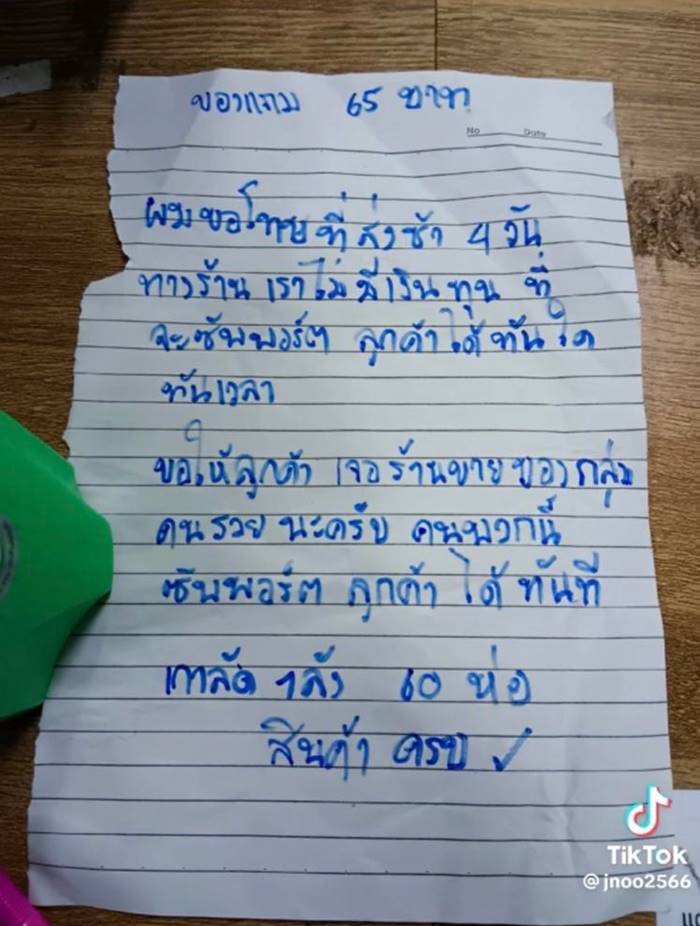 ของแถม 65 บาท
No Date
ผมขอโทษที่ส่งช้า 4 วัน
ทางร้าน เราไม่มีเงินทุน ที่
จะซัพพอร์ต ลูกค้าได้ทันใด
ทันเวลา
ขอให้ลูกค้า เจอร้านขายของกลุ่ม
คนรวย นะครับ คนพวกนี้
ซัพพอร์ต ลูกค้า ได้ ทันที
เกาลัด 1 ลัง 60 ห่อ
สินค้า ครบ ✓
TikTok
@jnoo2566